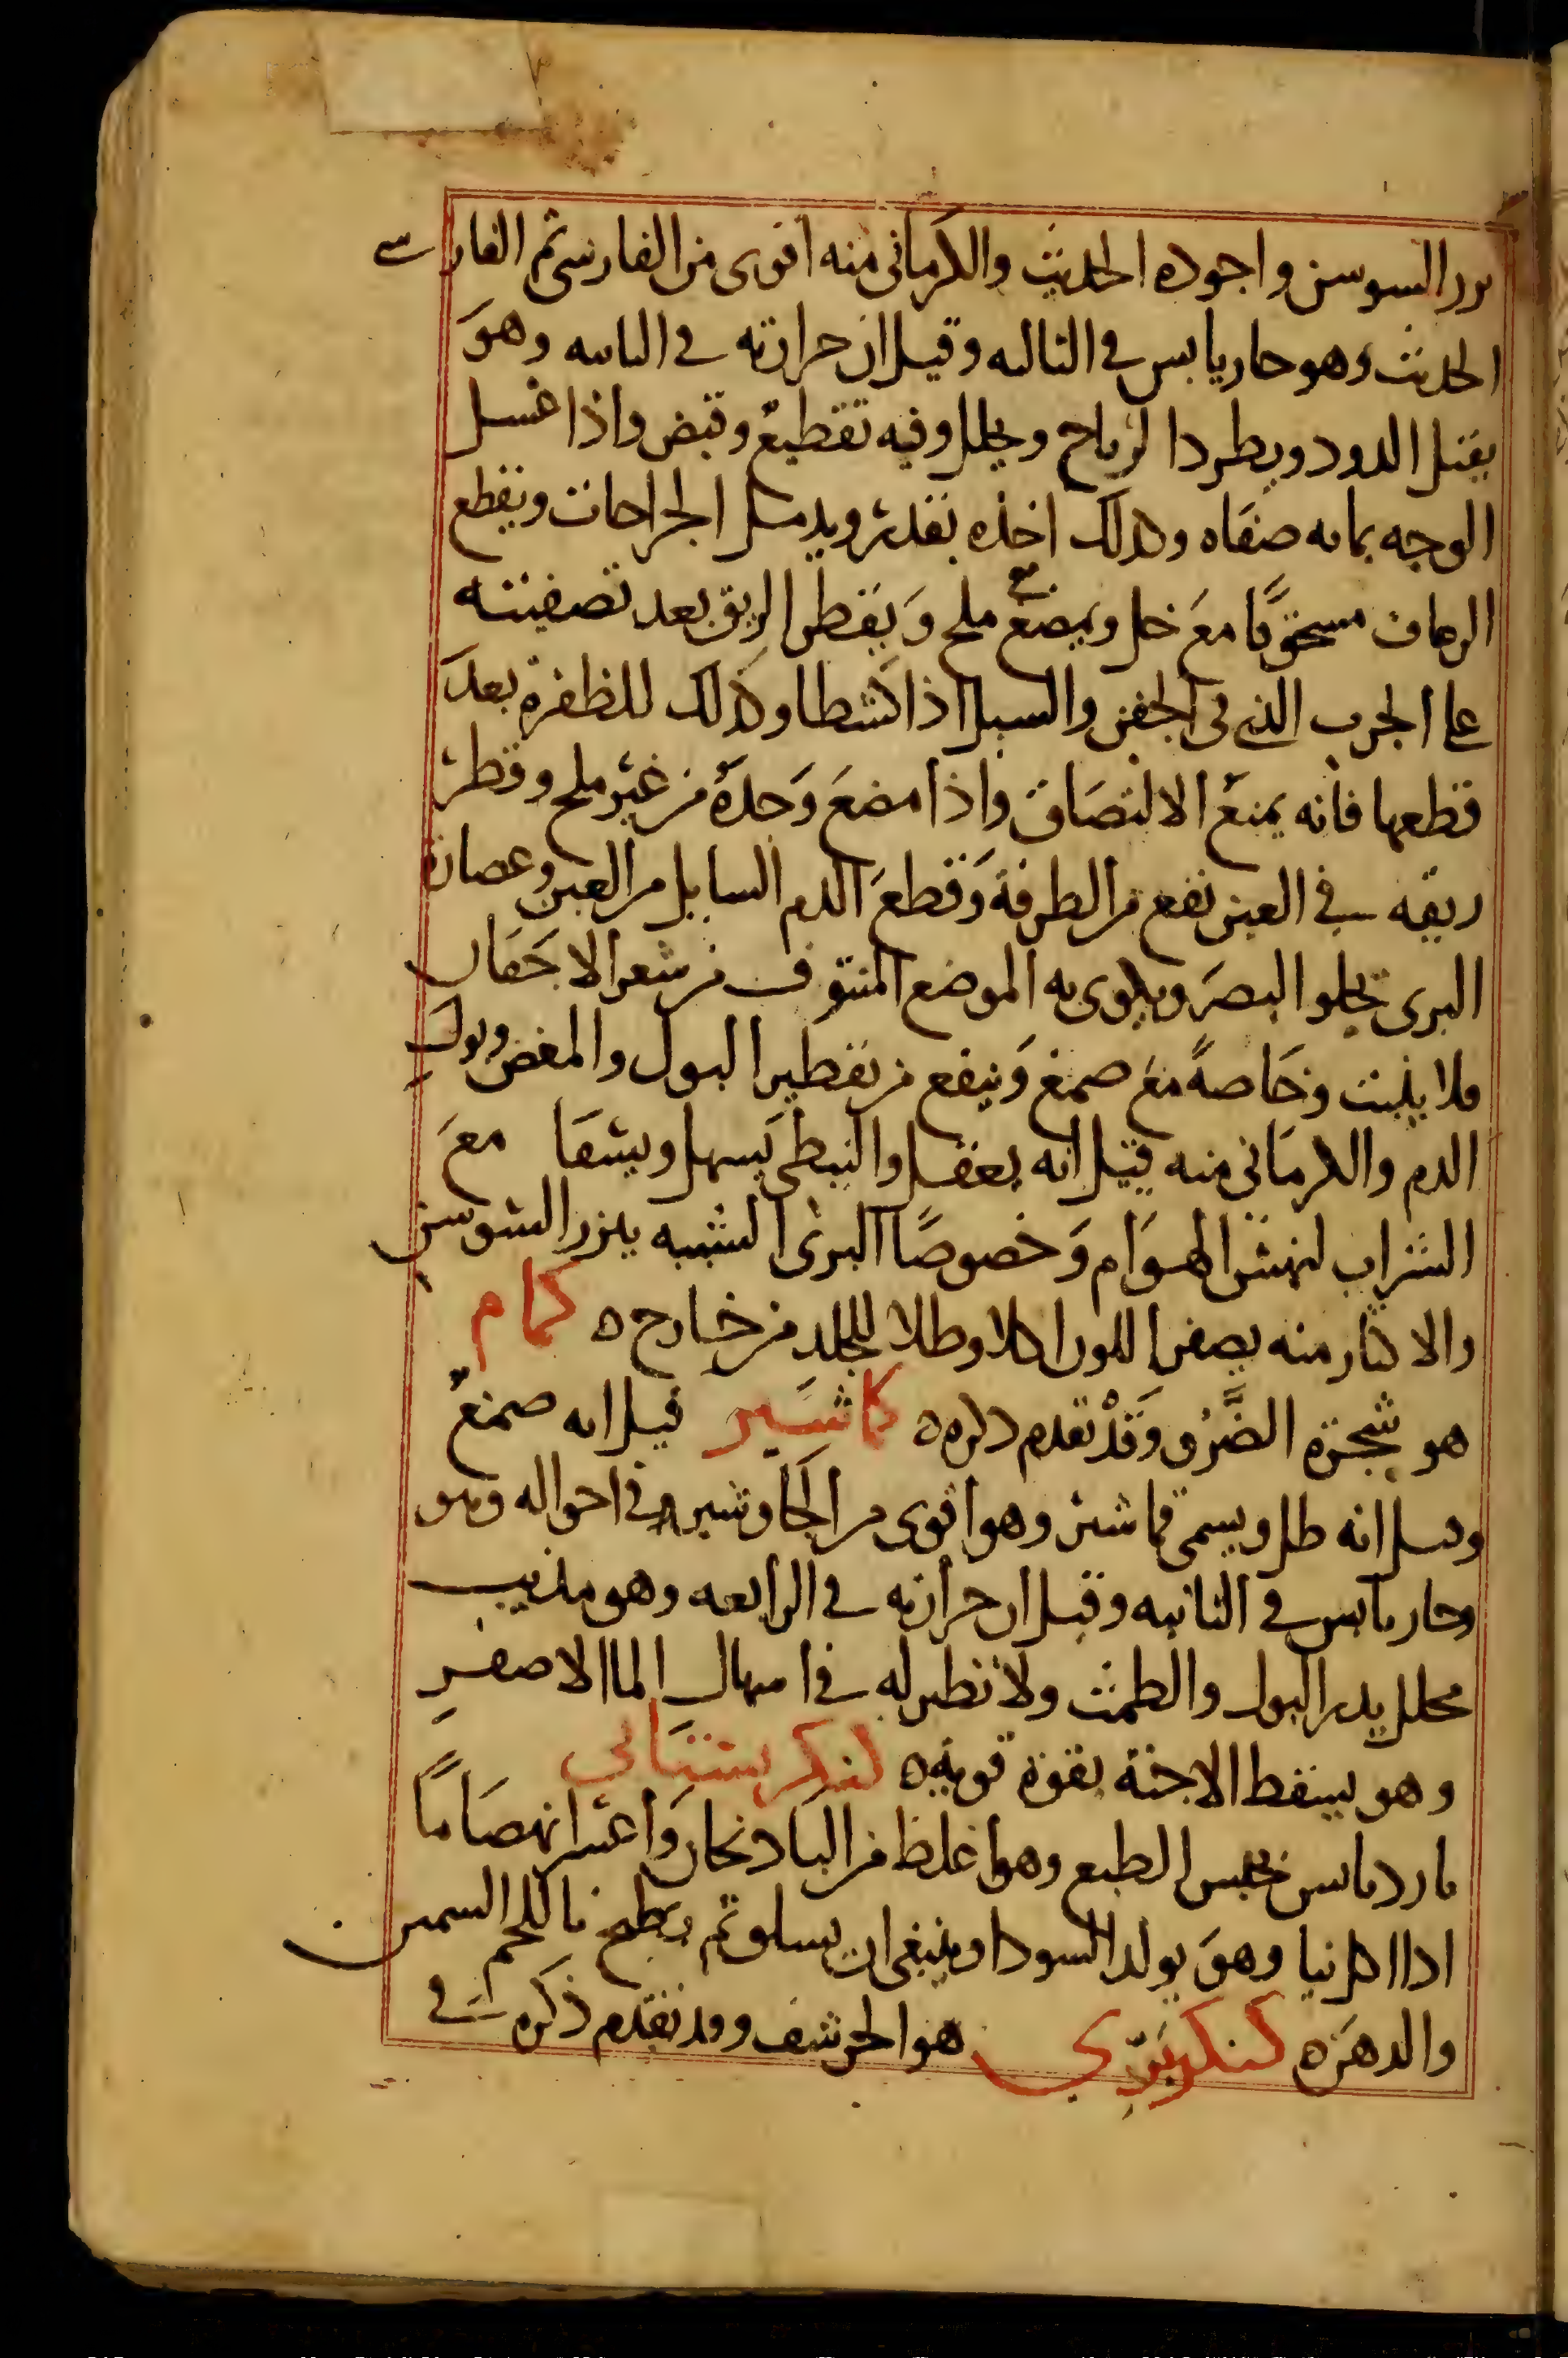 بزر السوسن واجوده الحديث والكرمانى منه اقوى من الفارسى ثم الفارسى
الحديث وهو حار يابس فى الثالثه وقيل ان حرارته فى الثانيه وهوَ
يقتل الدود ويطرد الرياح ويحلل وفيه تقطيعٌ وقبض واذا غسل
الوجه بمائه صفَاه وكذلك اخذه بقدرٍ ويدمل الجراحات ويقطع
الرعاف مسحوقًا معَ خل ويمضغ مع ملح وَيقطر الريق بعد تصفيته
على الجرب الذى فى الجفن والسبل اذا كشطا وكذلك للظفرة بعدَ
قطعها فانه يمنعُ الالتصَاق واذا مضغَ وَحدهُ من غير ملح وقطر
ريقه فى العين نفع من الطرفة وَقطعَ الدم السايل من العين وعصارة
البرى تجلوا البصرَ ويكوى به الموضع المنتوف من شعر الاجفَان
فلا ينبت وخَاصةً معَ صمغ وَينفع من تقطير البول والمغص وبول
الدم والكرمَانى منه قيل انه يعقل والنبطى يَسهل ويسقَا معَ
الشراب لنهش الهوَام وَخصوصًا البرىُ الشبيه ببزر السوسن
والاكثار منه يصفر اللون اكلا وطلا للجلد من خارج ه كمام
هو شجرة الضَّرْو وَقَدْ تقدم ذكره ه كماشَير قيل انه صمغٌ
وقيل انه طل ويسمى قماشير وهو اقوى من الجَاوشير فى احواله وهو
وحار يابس فى الثانيه وقيل ان حرارته فى الرابعه وهو مذيب
محلل يدر البول والطمث ولا نظير له فى اسهال الما الاصفر
وهو يسقط الاجنة بقوة قويه ه كنكر بستَانى
بارد يابس يحبس الطبع وهو اغلظ من البادنجان وَاعسر انهضَامًا
اذا اكل نيا وهوَ يولد السودا وينبغى ان يسلق ثم يطبخ باللحم السمين
والدهنَ ه كنكر بَرّي هو الحرشف وقد تقدم ذكره فى